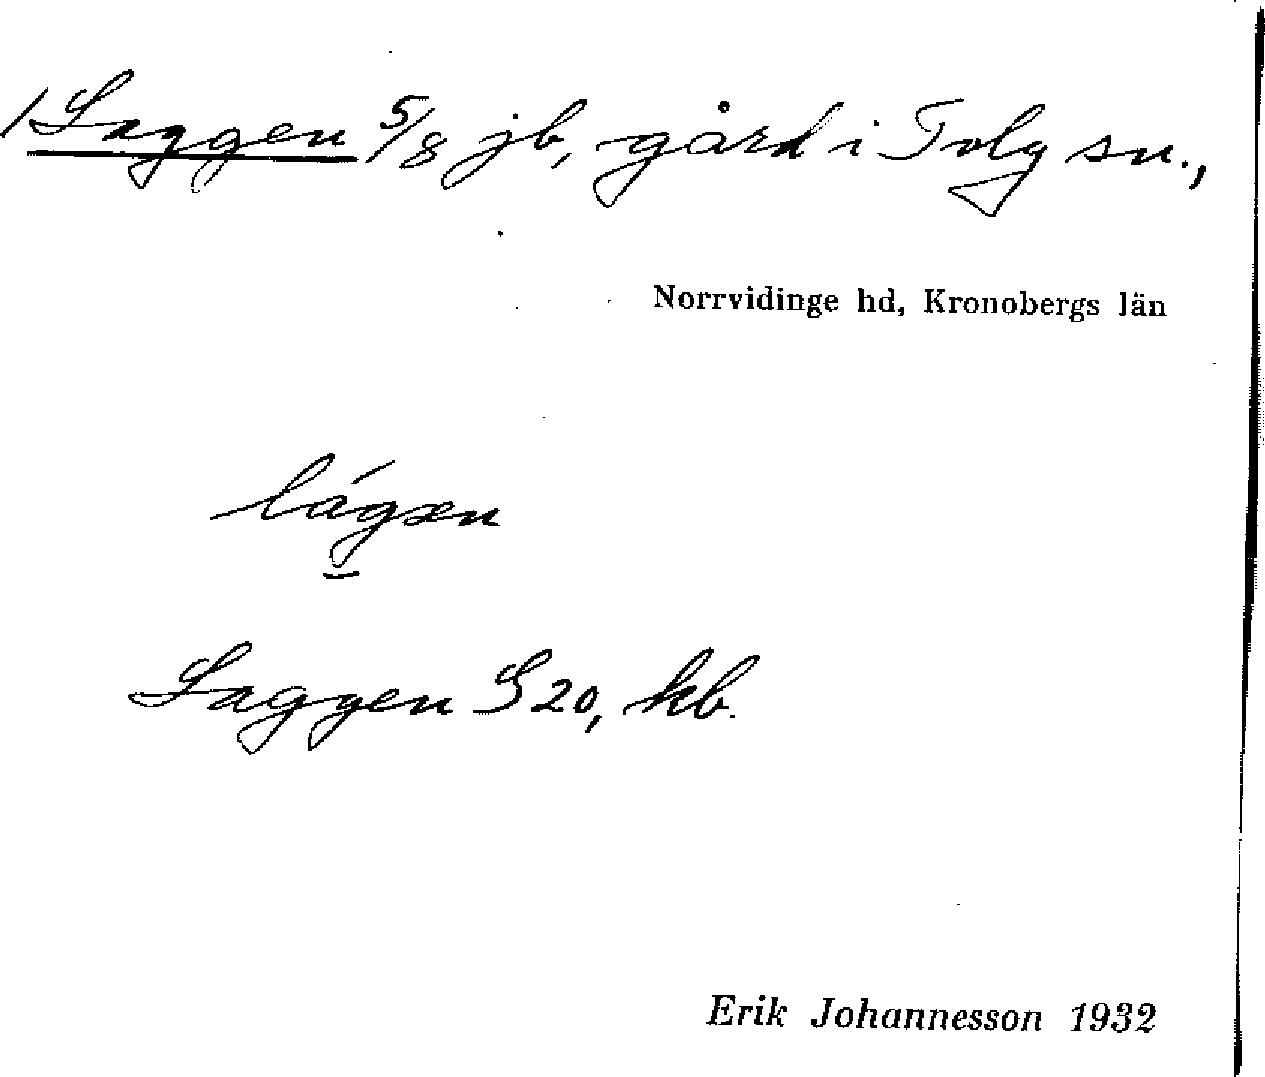 1 Laggen 5/8 jb, gård i Tolg sn.,
Norrvidinge hd, Kronobergs län
lágən
Laggen S 20, kb.
Erik Johannesson 1932